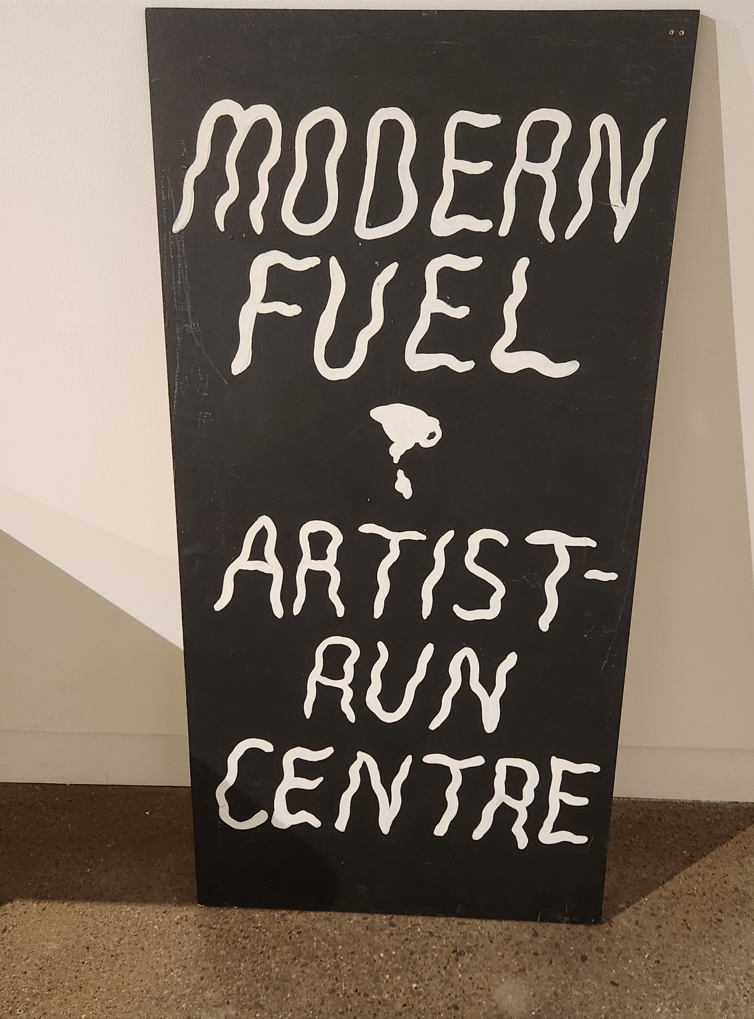 MODERN
FUEL
ARTIST-
RUN
CENTRE